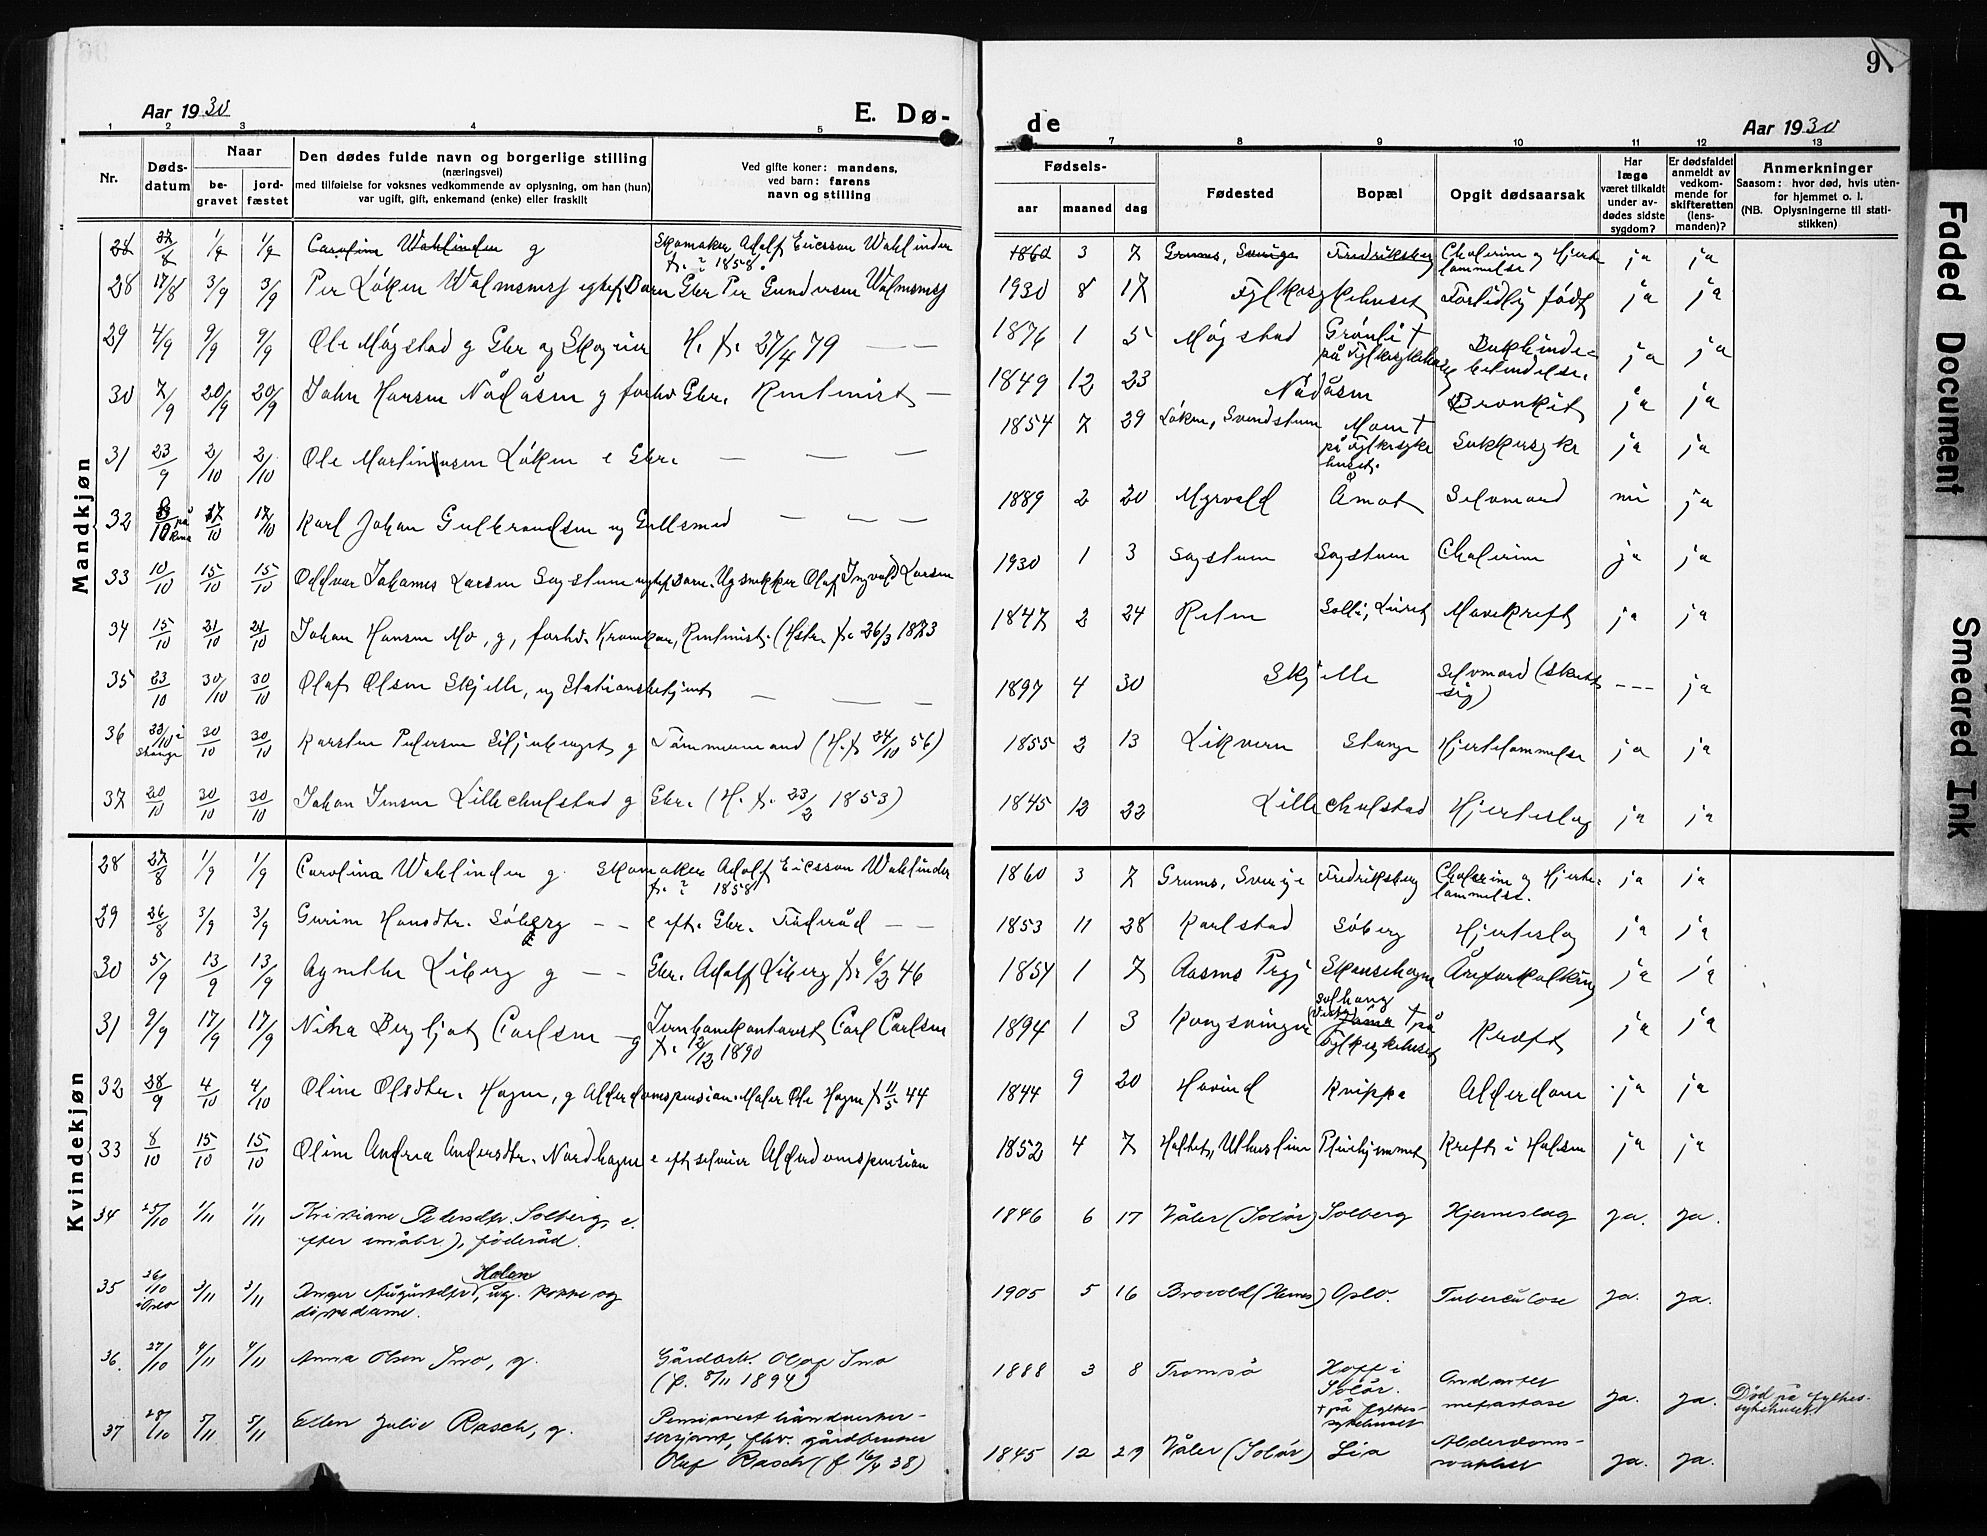 Aar 1930
E. Dø-
de
Aar 1930
9
1 2 3 4 5
7 8 9 10 11 12 13
Nr.
Døds-
datum
Naar
be-
gravet
jord-
fæstet
Den dødes fulde navn og borgerlige stilling
(næringsvei)
med tilføielse for voksnes vedkommende av oplysning, om han (hun)
var ugift, gift, enkemand (enke) eller fraskilt
Ved gifte koner: mandens,
ved barn: farens
navn og stilling
Fødsels-
aar maaned dag
Fødested
Bopæl
Opgit dødsaarsak
Har
læge
været tilkaldt
under av-
dødes sidste
sygdom?
Er dødsfaldet
anmeldt av
vedkom-
mende for
skifteretten
(lens-
manden)?
Anmerkninger
Saasom: hvor død, hvis uten-
for hjemmet o. l.
(NB. Oplysningerne til stati-
stikken)
Mandkjøn
28 27/8 1/9 1/9 Carolina Wahlinder g Skomaker Adolf Ericsson Wahlinder 1860 3 7 Grums, Sverige Fredriksberg Cholerine og Hjerte- ja ja
f. ? 1858. lammelse
28 17/8 3/9 3/9 Per Løken Barn Gbr Per Gundersen 1930 8 17 Fylkessykehuset For tidlig født ja ja
29 4/9 9/9 9/9 Ole Møystad g Gbr og Skogeier H. f. 27/4 79 — — 1876 1 5 Møystad Grønli † ja ja
på Fylkessykehuset
30 7/9 20/9 20/9 Johan Hansen Nødåsen g forhv Gbr. Rentenist — 1849 12 23 Nødåsen Bronkit ja ja
31 23/9 2/10 2/10 Ole Martinusen Løken e Gbr. — — — 1854 7 29 Løken, Moen † Sukkersyke ja ja
på Fylkessyke
huset.
32 8/10 17/10 17/10 Karl Johan Gulbrandsen ug Gullsmed — — — 1889 2 20 Myrvold Åmot Selvmord nei ja
33 10/10 15/10 15/10 Oddvar Johannes Larsen Sagstuen barn. Ug snekker Olaf Ingvald Larsen 1930 1 3 Sagstuen Sagstuen Cholerine ja ja
34 15/10 21/10 21/10 Johan Hansen Mo, g, forhv. Rentenist. (Hstr. f. 26/3 1873 1847 2 24 Solli, Mavekreft ja ja
35 23/10 30/10 30/10 Olaf Olsen Skjelle, ug Stationsbetjent — — — 1897 4 30 Skjelle Selvmord (skutt --- ja
sig)
36 23/10 i 30/10 30/10 Karsten Pedersen g Tømmermand (H. f 24/10 56) 1855 2 13 Likvern Stange Hjertelammelse ja ja
Stange
37 20/10 30/10 30/10 Johan Jensen g Gbr. (H. f. 23/2 1853) 1845 12 22 Hjerteslag ja ja
Kvindekjøn
28 27/8 1/9 1/9 Carolina Wahlinder g. Skomaker Adolf Ericsson Wahlinder 1860 3 7 Grums, Sverige Fredriksberg Cholerine og Hjerte- ja ja
f. ? 1858 lammelse.
29 26/8 3/9 3/9 Gurine Hansdtr. Søberg — — e eft. Gbr. Føderåd — — 1853 11 28 Karlstad Søberg Hjerteslag ja ja
30 5/9 13/9 13/9 Agnethe Liberg g — — Gbr. Adolf Liberg f. 6/2 46 1854 1 7 Aasnes Prgj Skansehagen Åreforkalkning ja ja
31 9/9 17/9 17/9 Bergljot Carlsen g Jernbanekontorist Carl Carlsen 1894 1 3 Kongsvinger Solhaug † på Kræft ja ja
f. 1890 Fylkessykehuset
32 28/9 4/10 4/10 Oline Olsdtr. Hagen, g Alderdomspension. Maler Ole Hagen f 11/5 44 1844 9 20 Hovind Kvippa Alderdom ja ja
33 8/10 15/10 15/10 Oline Andrea Andersdtr. Nordhagen e eft selveier Alderdomspension 1852 4 7 Pleiehjemmet Kreft i Halsen ja ja
34 25/10 1/11 1/11 Kristiane Pedersdtr. Solberg, e. 1846 6 17 Våler (Solør) Solberg Hjerneslag ja. ja.
efter føderåd.
35 26/10 2/11 2/11 Inger Augustdtr, Holen ug. kokke og 1905 5 16 Oslo. Tuberculose ja. ja.
i Oslo diskedame.
36. 27/10 4/11 4/11 Anna Olsen Imo, g. Gårdbrk. Olaf Imo 1888 3 8 Tromsø Hoff i ja. ja. Død på fylkes-
(f. 8/11 1894) Solør. metastase sykehuset
† på fylkes-
sykehuset
37 28/10 5/11 5/11 Ellen Julie Rasch, g. Pensionert 1845 12 29 Våler (Solør) Lia Alderdoms- ja. ja.
sersjant, fhv. gårdbruker svakhet
Olaf Rasch (f 16/4 38)
Faded Document
Smeared Ink